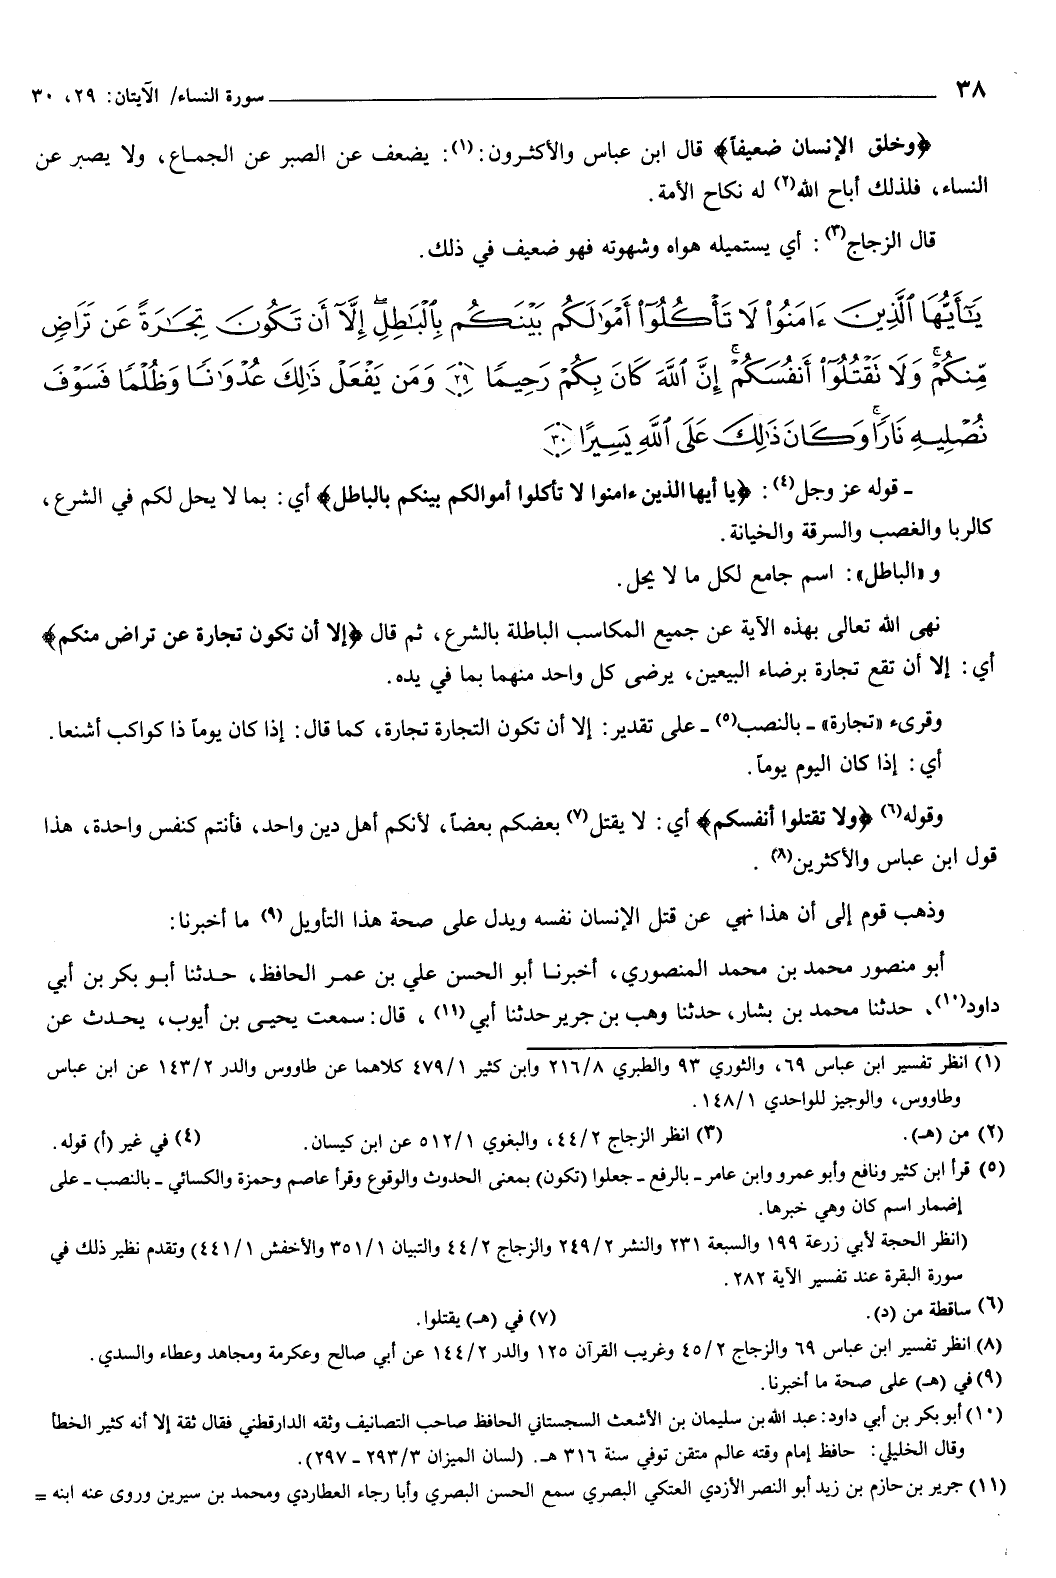 ٣٨ ــــــ سورة النساء/ الآيتان: ٢٩، ٣٠
﴿وخلق الإنسان ضعيفاً﴾ قال ابن عباس والأكثرون:(١): يضعف عن الصبر عن الجماع، ولا يصبر عن
النساء، فلذلك أباح الله(٢) له نكاح الأمة.
قال الزجاج(٣): أي يستميله هواه وشهوته فهو ضعيف في ذلك.
يَٰٓأَيُّهَا ٱلَّذِينَ ءَامَنُوا۟ لَا تَأْكُلُوٓا۟ أَمْوَٰلَكُم بَيْنَكُم بِٱلْبَٰطِلِ إِلَّآ أَن تَكُونَ تِجَٰرَةً عَن تَرَاضٍ
مِّنكُمْ ۚ وَلَا نَقْتُلُوٓا۟ أَنفُسَكُمْ ۚ إِنَّ ٱللَّهَ كَانَ بِكُمْ رَحِيمًا ۝٢٩ وَمَن يَفْعَلْ ذَٰلِكَ عُدْوَٰنًا وَظُلْمًا فَسَوْفَ
نُصْلِيهِ نَارًا ۚ وَكَانَ ذَٰلِكَ عَلَى ٱللَّهِ يَسِيرًا ۝٣٠
ـ قوله عز وجل(٤): ﴿يا أيها الذين ءامنوا لا تأكلوا أموالكم بينكم بالباطل﴾ أي: بما لا يحل لكم في الشرع،
كالربا والغصب والسرقة والخيانة.
و «الباطل»: اسم جامع لكل ما لا يحل.
نهى الله تعالى بهذه الآية عن جميع المكاسب الباطلة بالشرع، ثم قال ﴿إلا أن تكون تجارة عن تراض منكم﴾
أي: إلا أن تقع تجارة برضاء البيعين، يرضى كل واحد منهما بما في يده.
وقرىء «تجارة» ـ بالنصب(٥) ـ على تقدير: إلا أن تكون التجارة تجارة، كما قال: إذا كان يوماً ذا كواكب أشنعا.
أي: إذا كان اليوم يوماً.
وقوله(٦) ﴿ولا تقتلوا أنفسكم﴾ أي: لا يقتل(٧) بعضكم بعضاً، لأنكم أهل دين واحد، فأنتم كنفس واحدة، هذا
قول ابن عباس والأكثرين(٨).
وذهب قوم إلى أن هذا نهي عن قتل الإنسان نفسه ويدل على صحة هذا التأويل(٩) ما أخبرنا:
أبو منصور محمد بن محمد المنصوري، أخبرنا أبو الحسن علي بن عمر الحافظ، حدثنا أبو بكر بن أبي
داود(١٠)، حدثنا محمد بن بشار، حدثنا وهب بن جرير حدثنا أبي(١١)، قال: سمعت يحيى بن أيوب، يحدث عن
(١) انظر تفسير ابن عباس ٦٩، والثوري ٩٣ والطبري ٢١٦/٨ وابن كثير ٤٧٩/١ كلاهما عن طاووس والدر ١٤٣/٢ عن ابن عباس
وطاووس، والوجيز للواحدي ١٤٨/١.
(٢) من (هـ). (٣) انظر الزجاج ٤٤/٢، والبغوي ٥١٢/١ عن ابن كيسان. (٤) في غير (أ) قوله.
(٥) قرأ ابن كثير ونافع وأبو عمرو وابن عامر ـ بالرفع ـ جعلوا (تكون) بمعنى الحدوث والوقوع وقرأ عاصم وحمزة والكسائي ـ بالنصب ـ على
إضمار اسم كان وهي خبرها.
(انظر الحجة لأبي زرعة ١٩٩ والسبعة ٢٣١ والنشر ٢٤٩/٢ والزجاج ٤٤/٢ والتبيان ٣٥١/١ والأخفش ٤٤١/١) وتقدم نظير ذلك في
سورة البقرة عند تفسير الآية ٢٨٢.
(٦) ساقطة من (د). (٧) في (هـ) يقتلوا.
(٨) انظر تفسير ابن عباس ٦٩ والزجاج ٤٥/٢ وغريب القرآن ١٢٥ والدر ١٤٤/٢ عن أبي صالح وعكرمة ومجاهد وعطاء والسدي.
(٩) في (هـ) على صحة ما أخبرنا.
(١٠) أبو بكر بن أبي داود: عبد الله بن سليمان بن الأشعث السجستاني الحافظ صاحب التصانيف وثقه الدارقطني فقال ثقة إلا أنه كثير الخطأ
وقال الخليلي: حافظ إمام وقته عالم متقن توفي سنة ٣١٦ هـ. (لسان الميزان ٢٩٣/٣ ـ ٢٩٧).
(١١) جرير بن حازم بن زيد أبو النصر الأزدي العتكي البصري سمع الحسن البصري وأبا رجاء العطاردي ومحمد بن سيرين وروى عنه ابنه =